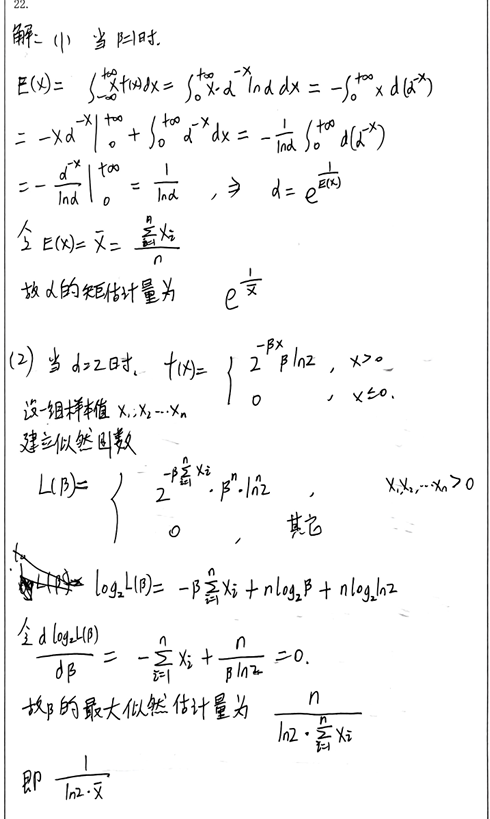 22.
解: (1) 当β=1时.
E(X)= ∫_{-∞}^{+∞} x f(x)dx = ∫_0^{+∞} x·α^{-x} lnα dx = -∫_0^{+∞} x d(α^{-x})
= -xα^{-x}|_0^{+∞} + ∫_0^{+∞} α^{-x}dx = -1/lnα ∫_0^{+∞} d(α^{-x})
= -α^{-x}/lnα |_0^{+∞} = 1/lnα , ⇒ α = e^{1/E(X)}
令 E(X)= X̄ = ∑_{i=1}^{n} X_i / n
故α的矩估计量为 e^{1/X̄}
(2) 当α=2时. f(x)= { 2^{-βx} β ln2 , x>0
0 , x≤0.
设一组样本值 x_1,x_2…x_n
建立似然函数
L(β)= { 2^{-β∑_{i=1}^{n} x_i}·β^n·ln^n2 , x_1,x_2,…x_n>0
0 , 其它
log_2L(β)= -β∑_{i=1}^{n} x_i + nlog_2β + nlog_2ln2
令 dlog_2L(β)/dβ = -∑_{i=1}^{n} x_i + n/(βln2) =0.
故β的最大似然估计量为 n/(ln2·∑_{i=1}^{n} X_i)
即 1/(ln2·X̄)